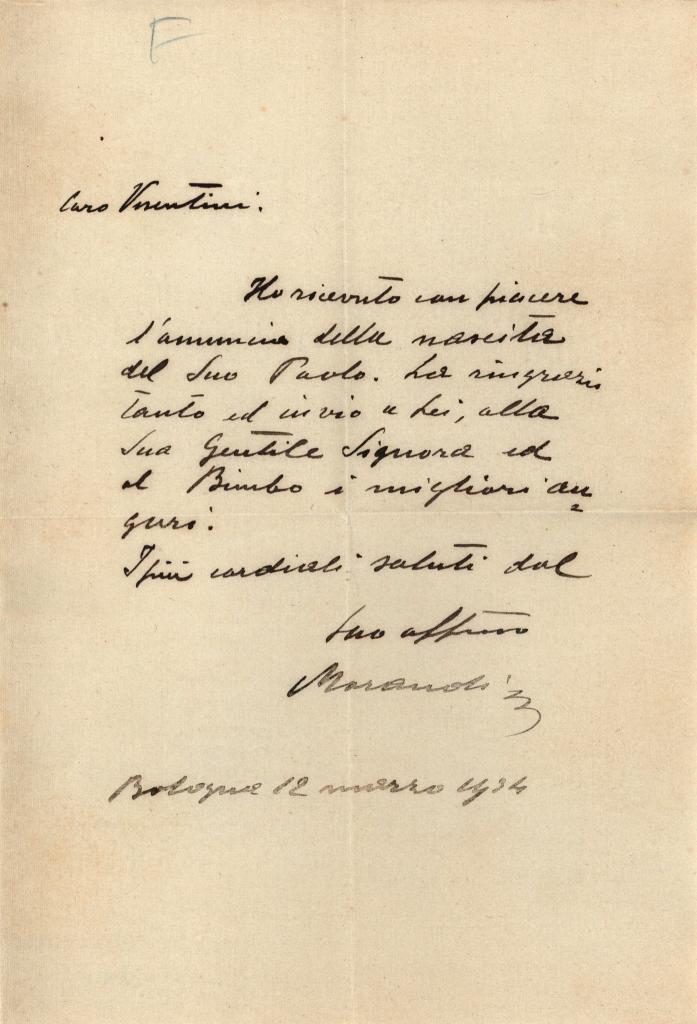 F
Caro Visentini.
Ho ricevuto con piacere
l'annuncio della nascita
del Suo Paolo. La ringrazio
tanto ed invio a Lei, alla
Sua Gentile Signora ed
al Bimbo i migliori au=
guri.
I più cordiali saluti dal
Suo affmo
Morandi
Bologna 12 marzo 1934